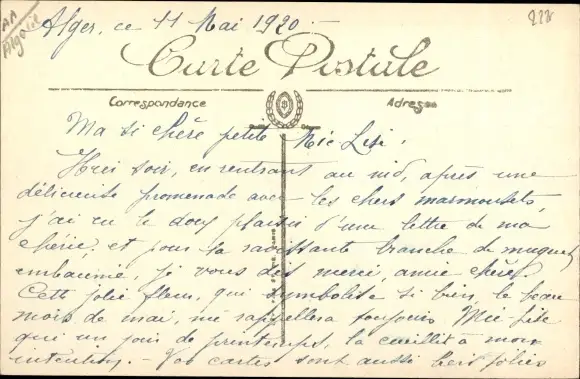 Alger, ce 11 Mai 1920.-
AA
Algérie
228
Carte Postale
Correspondance
Adresse
Ma si chère petite
Hier soir, en rentrant au nid, après une
délicieuse promenade avec les chers marmousets,
j'ai eu le doux plaisir d'une lettre de ma
chérie, et pour la ravissante branche de muguet
embaumé, je vous dis merci, amie chère!
Cette jolie fleur, qui symbolise si bien le beau
mois de mai, me rappellera toujours
qui un jour de printemps, la cueillit à mon
intention. - Vos cartes sont aussi jolies